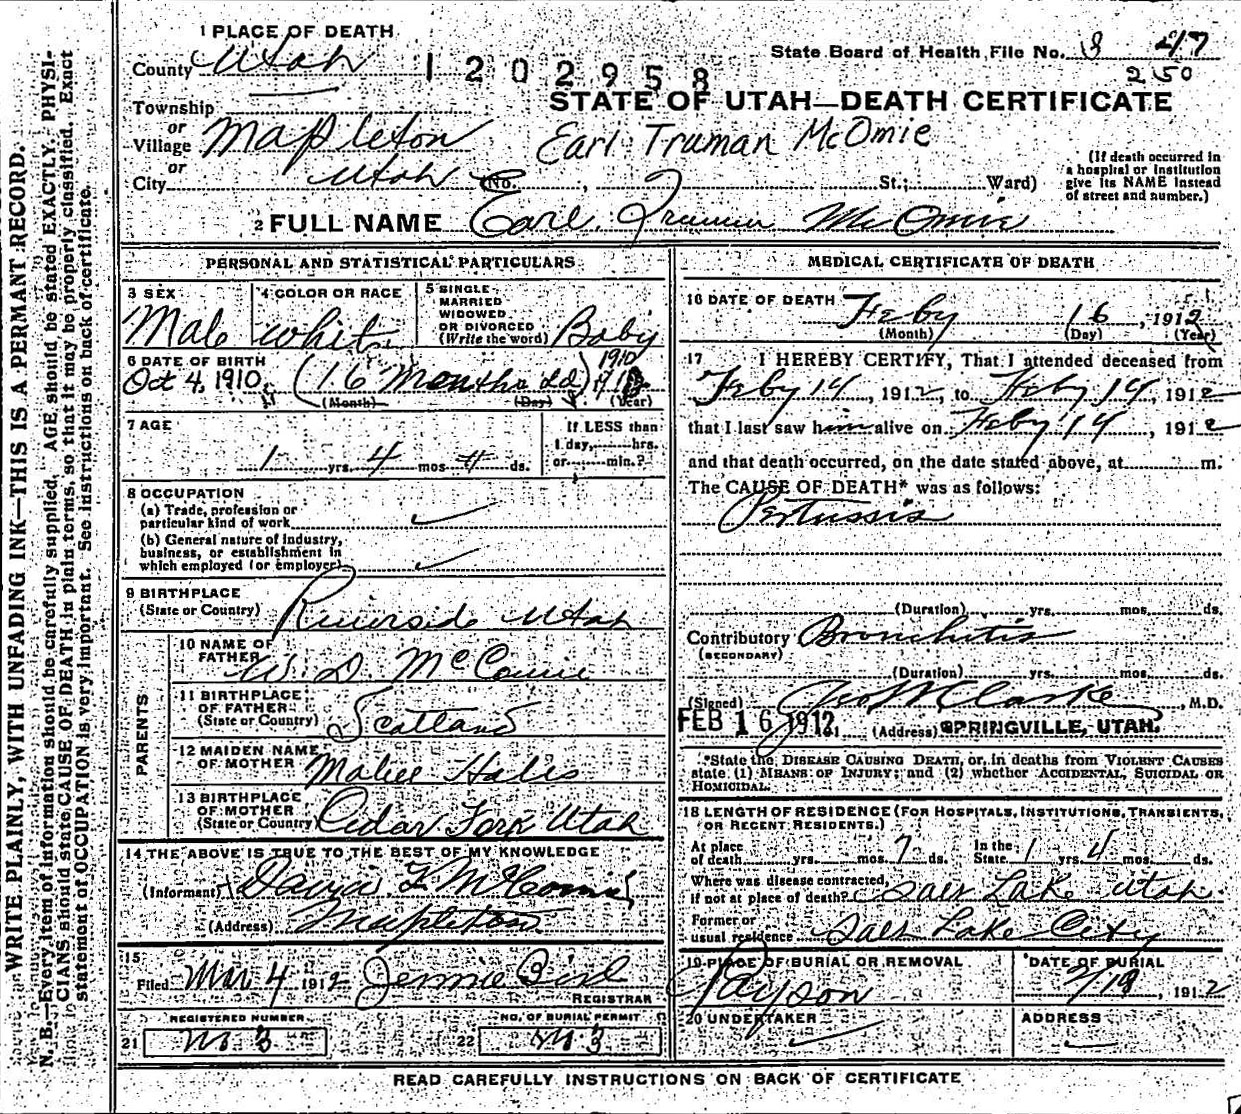 WRITE PLAINLY, WITH UNFADING INK—THIS IS A PERMANT RECORD.
N. B.—Every item of information should be carefully supplied. AGE should be stated EXACTLY. PHYSI-
CIANS should state CAUSE OF DEATH in plain terms, so that it may be properly classified. Exact
statement of OCCUPATION is very important. See instructions on back of certificate.
1 PLACE OF DEATH
County Utah
1202958
State Board of Health File No. 8 247
250
STATE OF UTAH—DEATH CERTIFICATE
Township
or
Village Mapleton
Earl Truman McOmie
or
City Utah (No. , St.; Ward)
(If death occurred in
a hospital or institution
give its NAME instead
of street and number.)
2 FULL NAME Earl Truman McOmie
PERSONAL AND STATISTICAL PARTICULARS
3 SEX Male
4 COLOR OR RACE white
5 SINGLE
MARRIED
WIDOWED
OR DIVORCED
(Write the word) Baby
6 DATE OF BIRTH
Oct 4, 1910. (16 Months old) 1910
(Month) (Day) (Year)
7 AGE
1 yrs. 4 mos. ds.
If LESS than
1 day, hrs.
or min.?
8 OCCUPATION
(a) Trade, profession or
particular kind of work
(b) General nature of industry,
business, or establishment in
which employed (or employer)
9 BIRTHPLACE
(State or Country) Riverside Utah
PARENTS
10 NAME OF
FATHER W. D. McComie
11 BIRTHPLACE
OF FATHER
(State or Country) Scotland
12 MAIDEN NAME
OF MOTHER
13 BIRTHPLACE
OF MOTHER
(State or Country) Cedar Fork Utah
14 THE ABOVE IS TRUE TO THE BEST OF MY KNOWLEDGE
(Informant) David
(Address) Mapleton
15
Filed Mar 4 1912 Jennie Bird
REGISTRAR
REGISTERED NUMBER NO. OF BURIAL PERMIT
21 No. 3 22 No. 3
MEDICAL CERTIFICATE OF DEATH
16 DATE OF DEATH
Feby 16, 1912
(Month) (Day) (Year)
17 I HEREBY CERTIFY, That I attended deceased from
Feby 14, 1912, to Feby 14, 1912
that I last saw him alive on Feby 14, 1912
and that death occurred, on the date stated above, at m.
The CAUSE OF DEATH* was as follows:
Pertussis
(Duration) yrs. mos. ds.
Contributory Bronchitis
(SECONDARY)
(Duration) yrs. mos. ds.
(Signed) Geo M Clarke, M.D.
FEB 16 1912 191 (Address) SPRINGVILLE, UTAH.
*State the DISEASE CAUSING DEATH, or, in deaths from VIOLENT CAUSES
state (1) MEANS OF INJURY; and (2) whether ACCIDENTAL, SUICIDAL OR
HOMICIDAL.
18 LENGTH OF RESIDENCE (FOR HOSPITALS, INSTITUTIONS, TRANSIENTS,
OR RECENT RESIDENTS.)
At place
of death yrs. mos. 7 ds. In the
State 1 yrs. 4 mos. ds.
Where was disease contracted,
if not at place of death? Salt Lake Utah
Former or
usual residence Salt Lake City
19 PLACE OF BURIAL OR REMOVAL
Payson
DATE OF BURIAL
2/19, 1912
20 UNDERTAKER
ADDRESS
READ CAREFULLY INSTRUCTIONS ON BACK OF CERTIFICATE